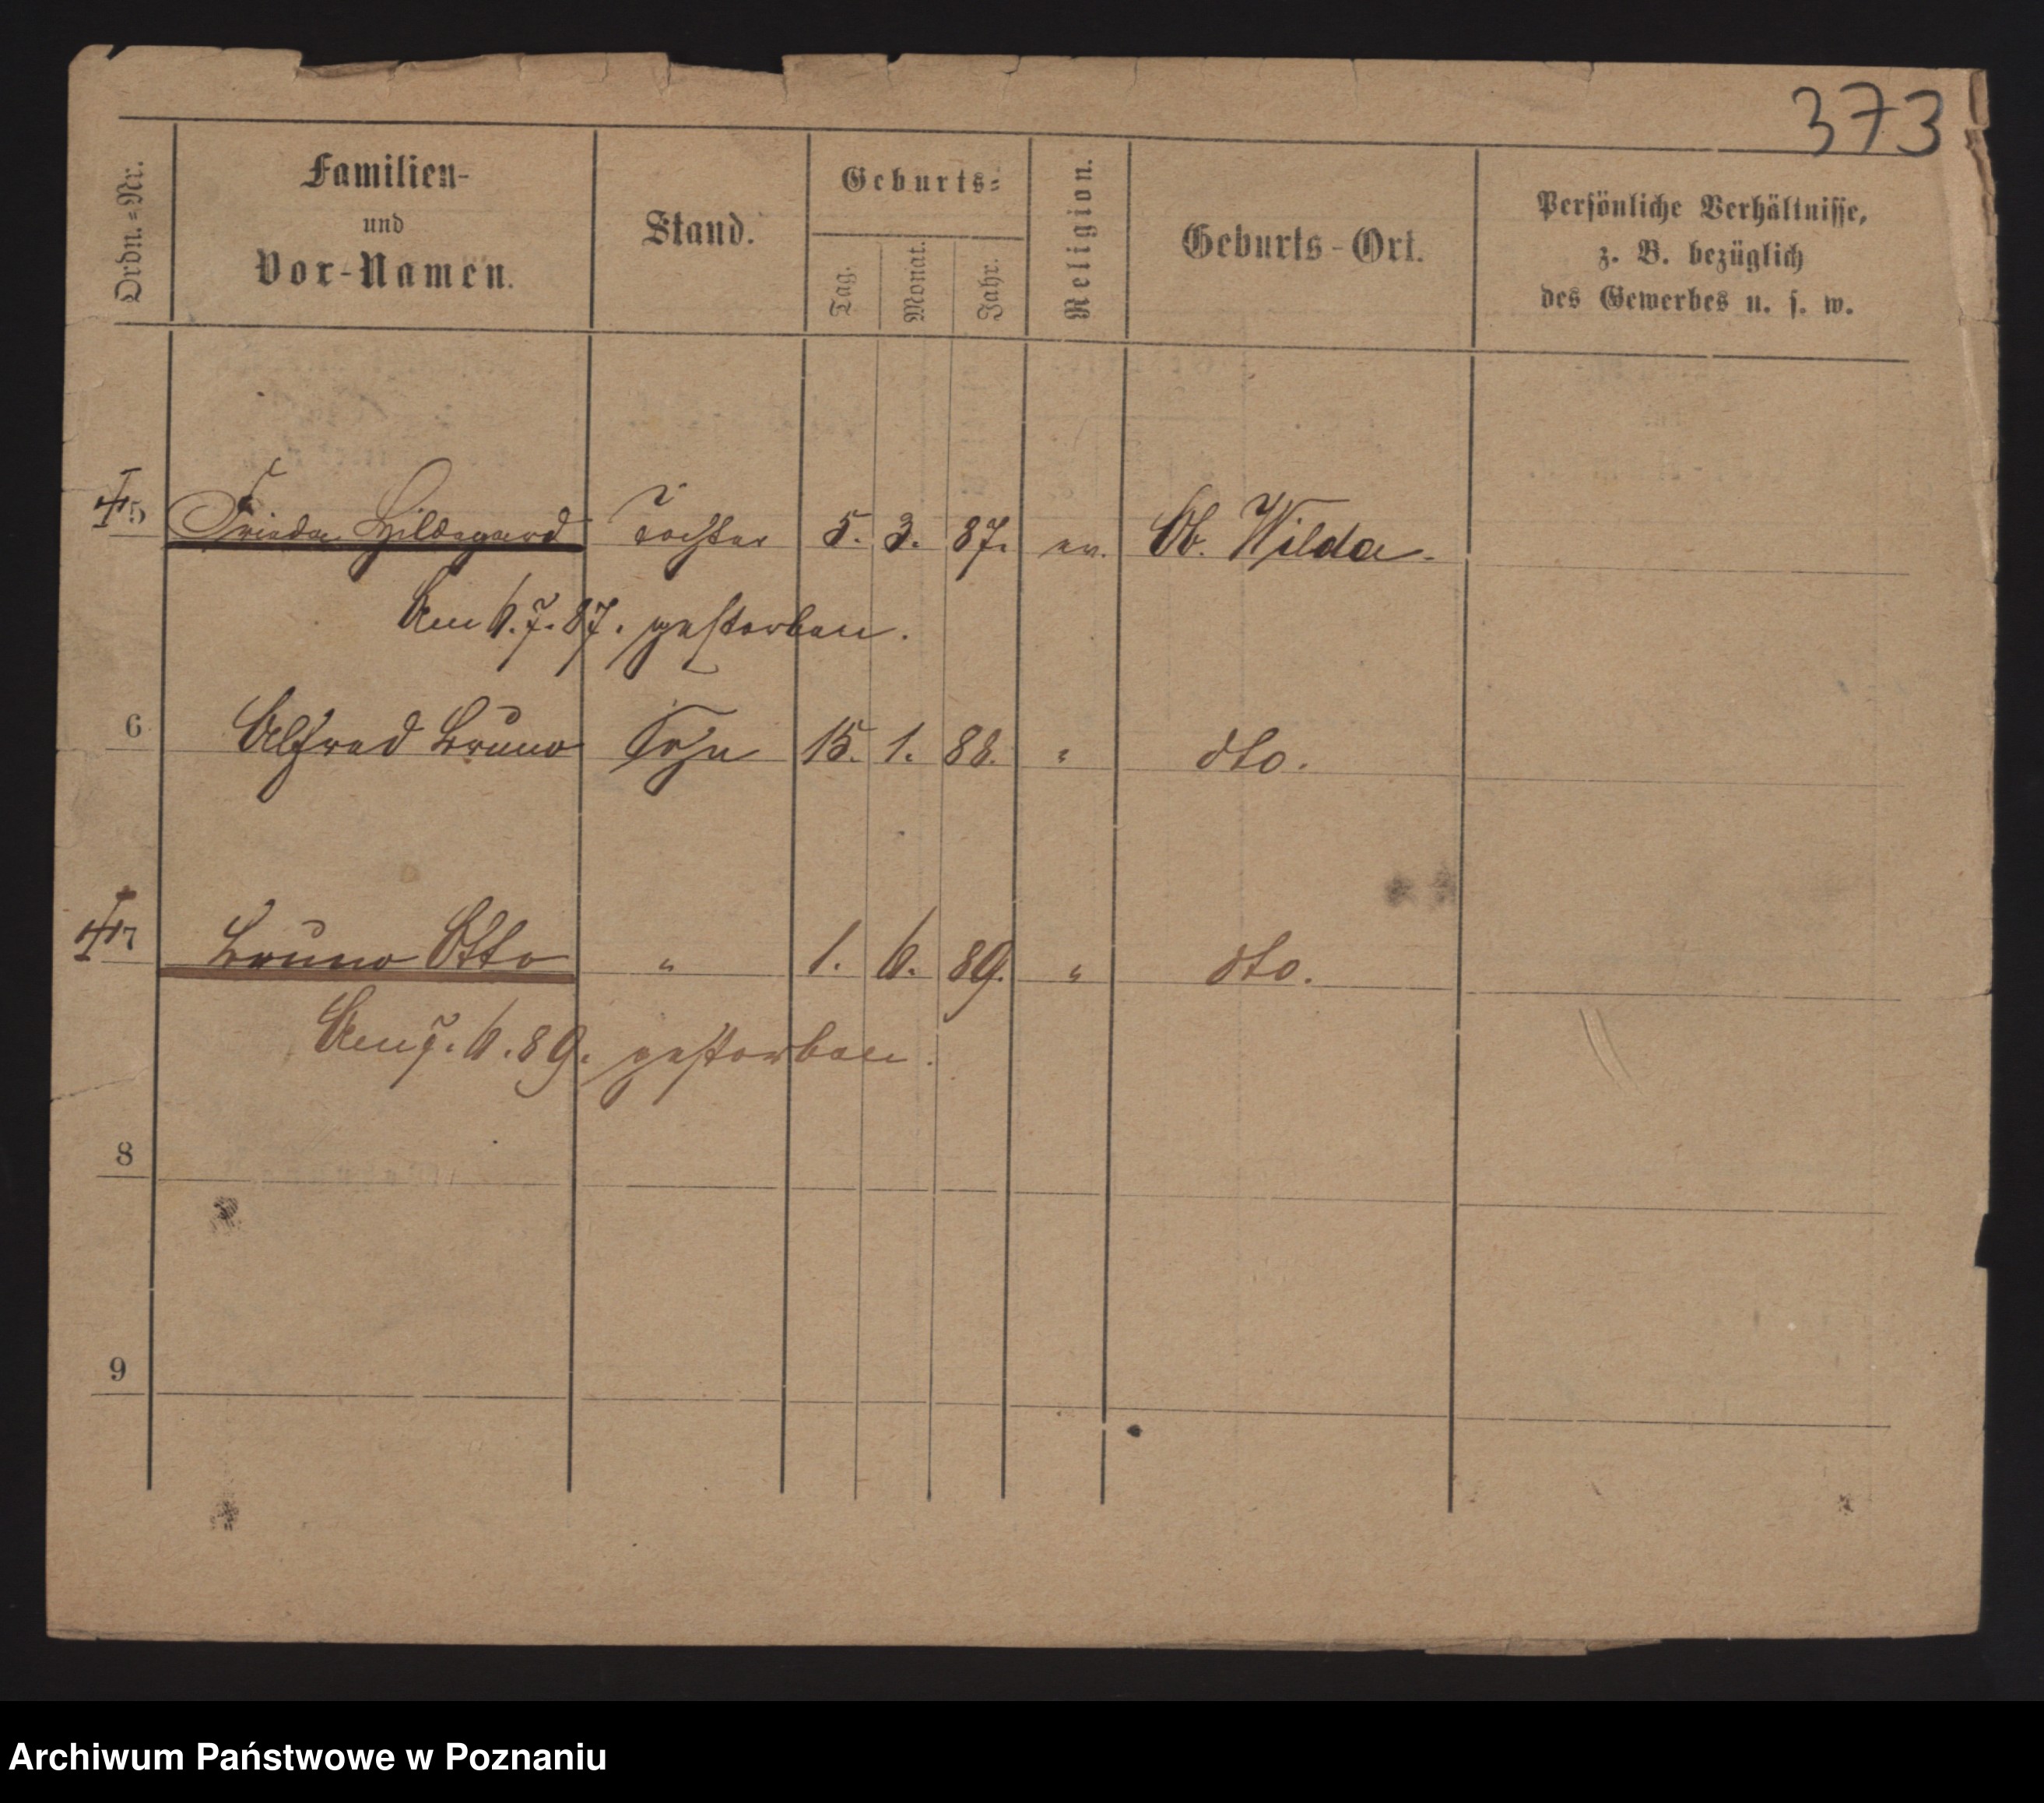 373
Ordn.-Nr.
Familien-
und
Vor-Namen.
Stand.
Geburts-
Tag. Monat. Jahr.
Religion.
Geburts-Ort.
Persönliche Verhältnisse,
z. B. bezüglich
des Gewerbes u. s. w.
5 Frieda Hildegard Tochter 5. 3. 87. ev. Ob. Wilda.
Am 6.7.87. gestorben.
6 Alfred Bruno Sohn 15. 1. 88. " dto.
7 Bruno Otto " 1. 6. 89. " dto.
Am 7.6.89. gestorben.
8
9
Archiwum Państwowe w Poznaniu